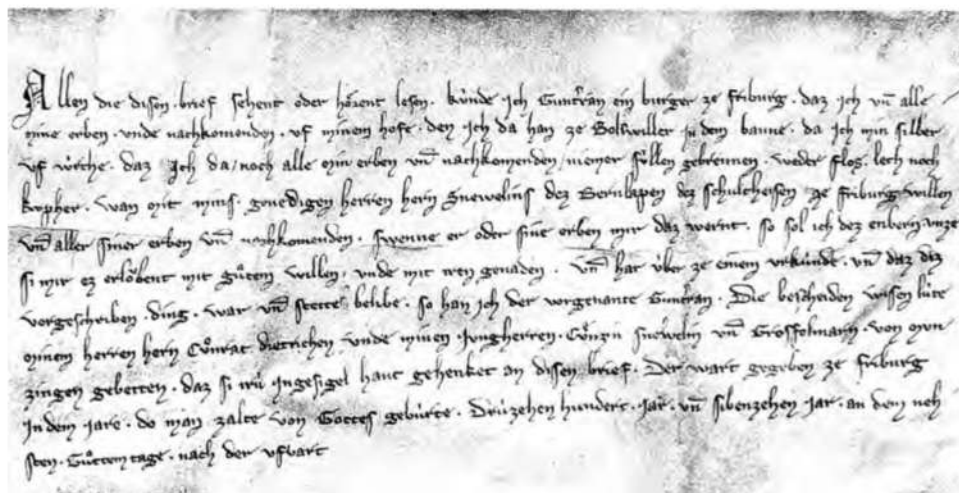 Allen die disen · brief sehent oder hoͤrent lesen · kuͤnde ich Guntran ein burger ze friburg · daz ich vn̄ alle
mine erben · vnde nachkomenden · vf minem hofe · den ich da han ze Bolswiller in dem banne · da ich min silber
vf wuͤrche · daz ich da / noch alle min erben vn̄ nachkomenden / niemer suͤllen gebrennen · weder floz · lech noch
kopher · wan mit mins · gnedigen herren hern Snewelins dez Bernlapen dez schultheisen ze friburg willen
vn̄ aller siner erben vn̄ nachkomenden · swenne er oder sine erben mir daz wernt · so sol ich dez enbern vnze
si mir ez erloͮbent mit guͦtem willen · vnde mit iren genaden · vn̄ hat uͤber ze einem vrkuͤnde · vn̄ daz diz
vorgeschriben · ding · war vn̄ stette belibe · so han ich der vorgenante Guntran · Die bescheiden wisen luͤte
minem herren hern Cuͦnrat dietrichen vnde minen · jungherren · Cuͦnzin snewelin vn̄ Grosfolmarn · von mvn
zingen gebetten · daz si iruͤ ingesigel hant gehenket an disen brief · Der wart gegeben ze friburg
in dem jare · do man zalte von Gottes gebuͤrte · Druͤzehen hundert · jar · vn̄ sibenzehen jar · an dem neh
sten · Guͦtemtage · nach der vfvart